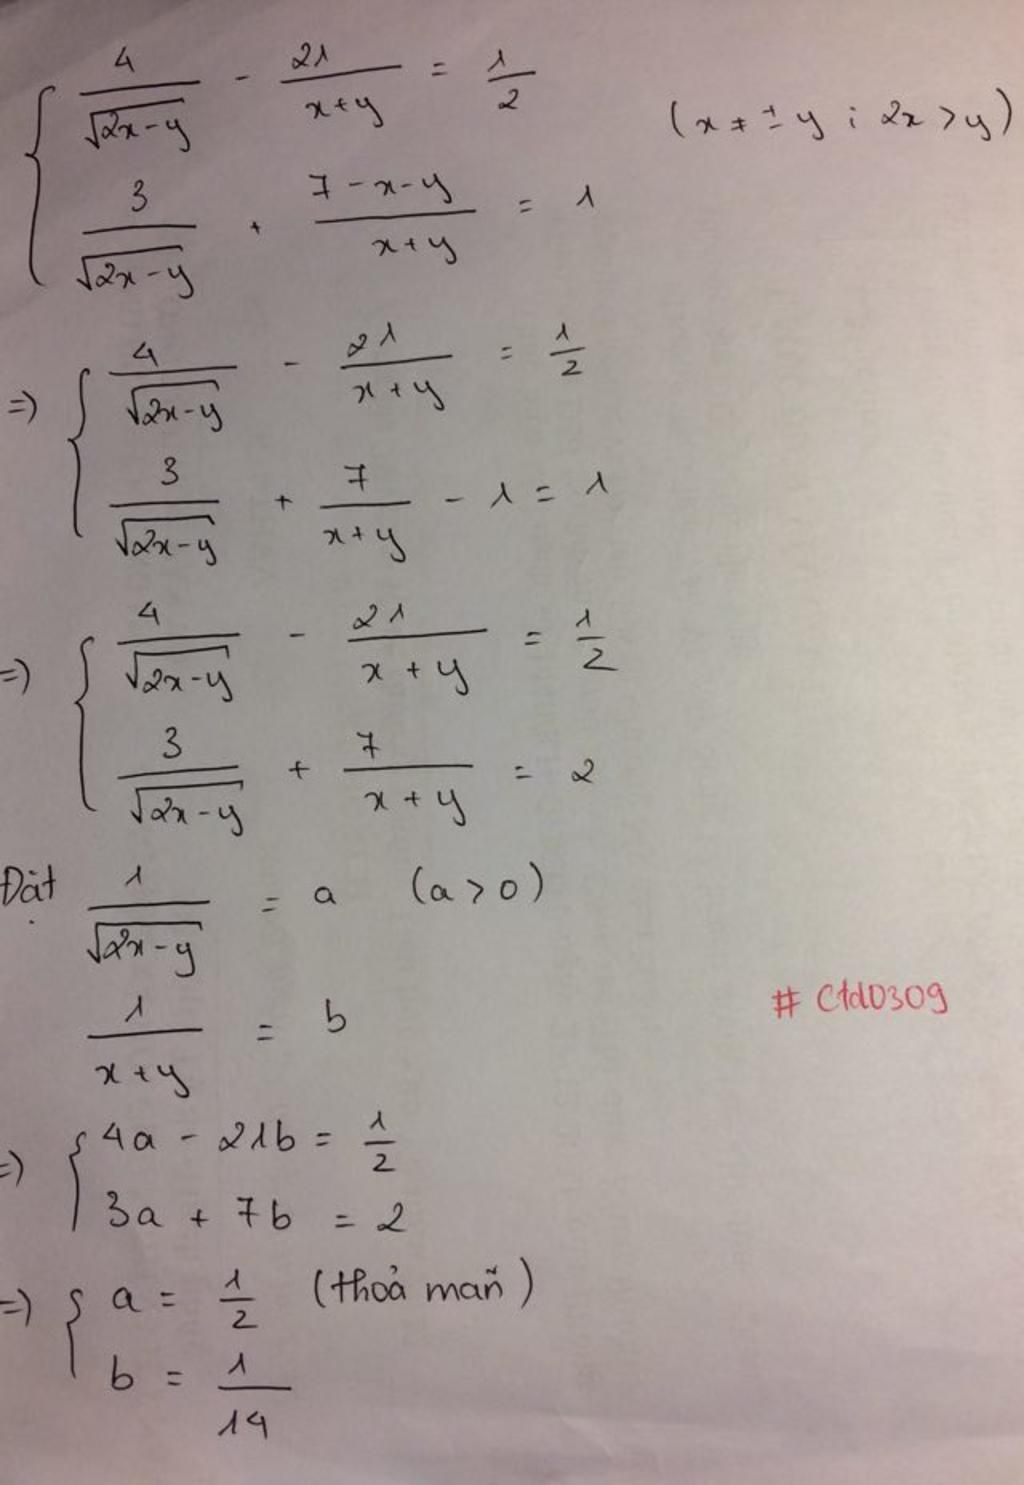 { 4/√(2x-y) - 21/(x+y) = 1/2 (x ≠ ± y ; 2x > y)
3/√(2x-y) + (7-x-y)/(x+y) = 1
=> { 4/√(2x-y) - 21/(x+y) = 1/2
3/√(2x-y) + 7/(x+y) - 1 = 1
=> { 4/√(2x-y) - 21/(x+y) = 1/2
3/√(2x-y) + 7/(x+y) = 2
Đặt 1/√(2x-y) = a (a > 0)
1/(x+y) = b
# Ctd0309
=> { 4a - 21b = 1/2
3a + 7b = 2
=> { a = 1/2 (thoả mãn)
b = 1/14